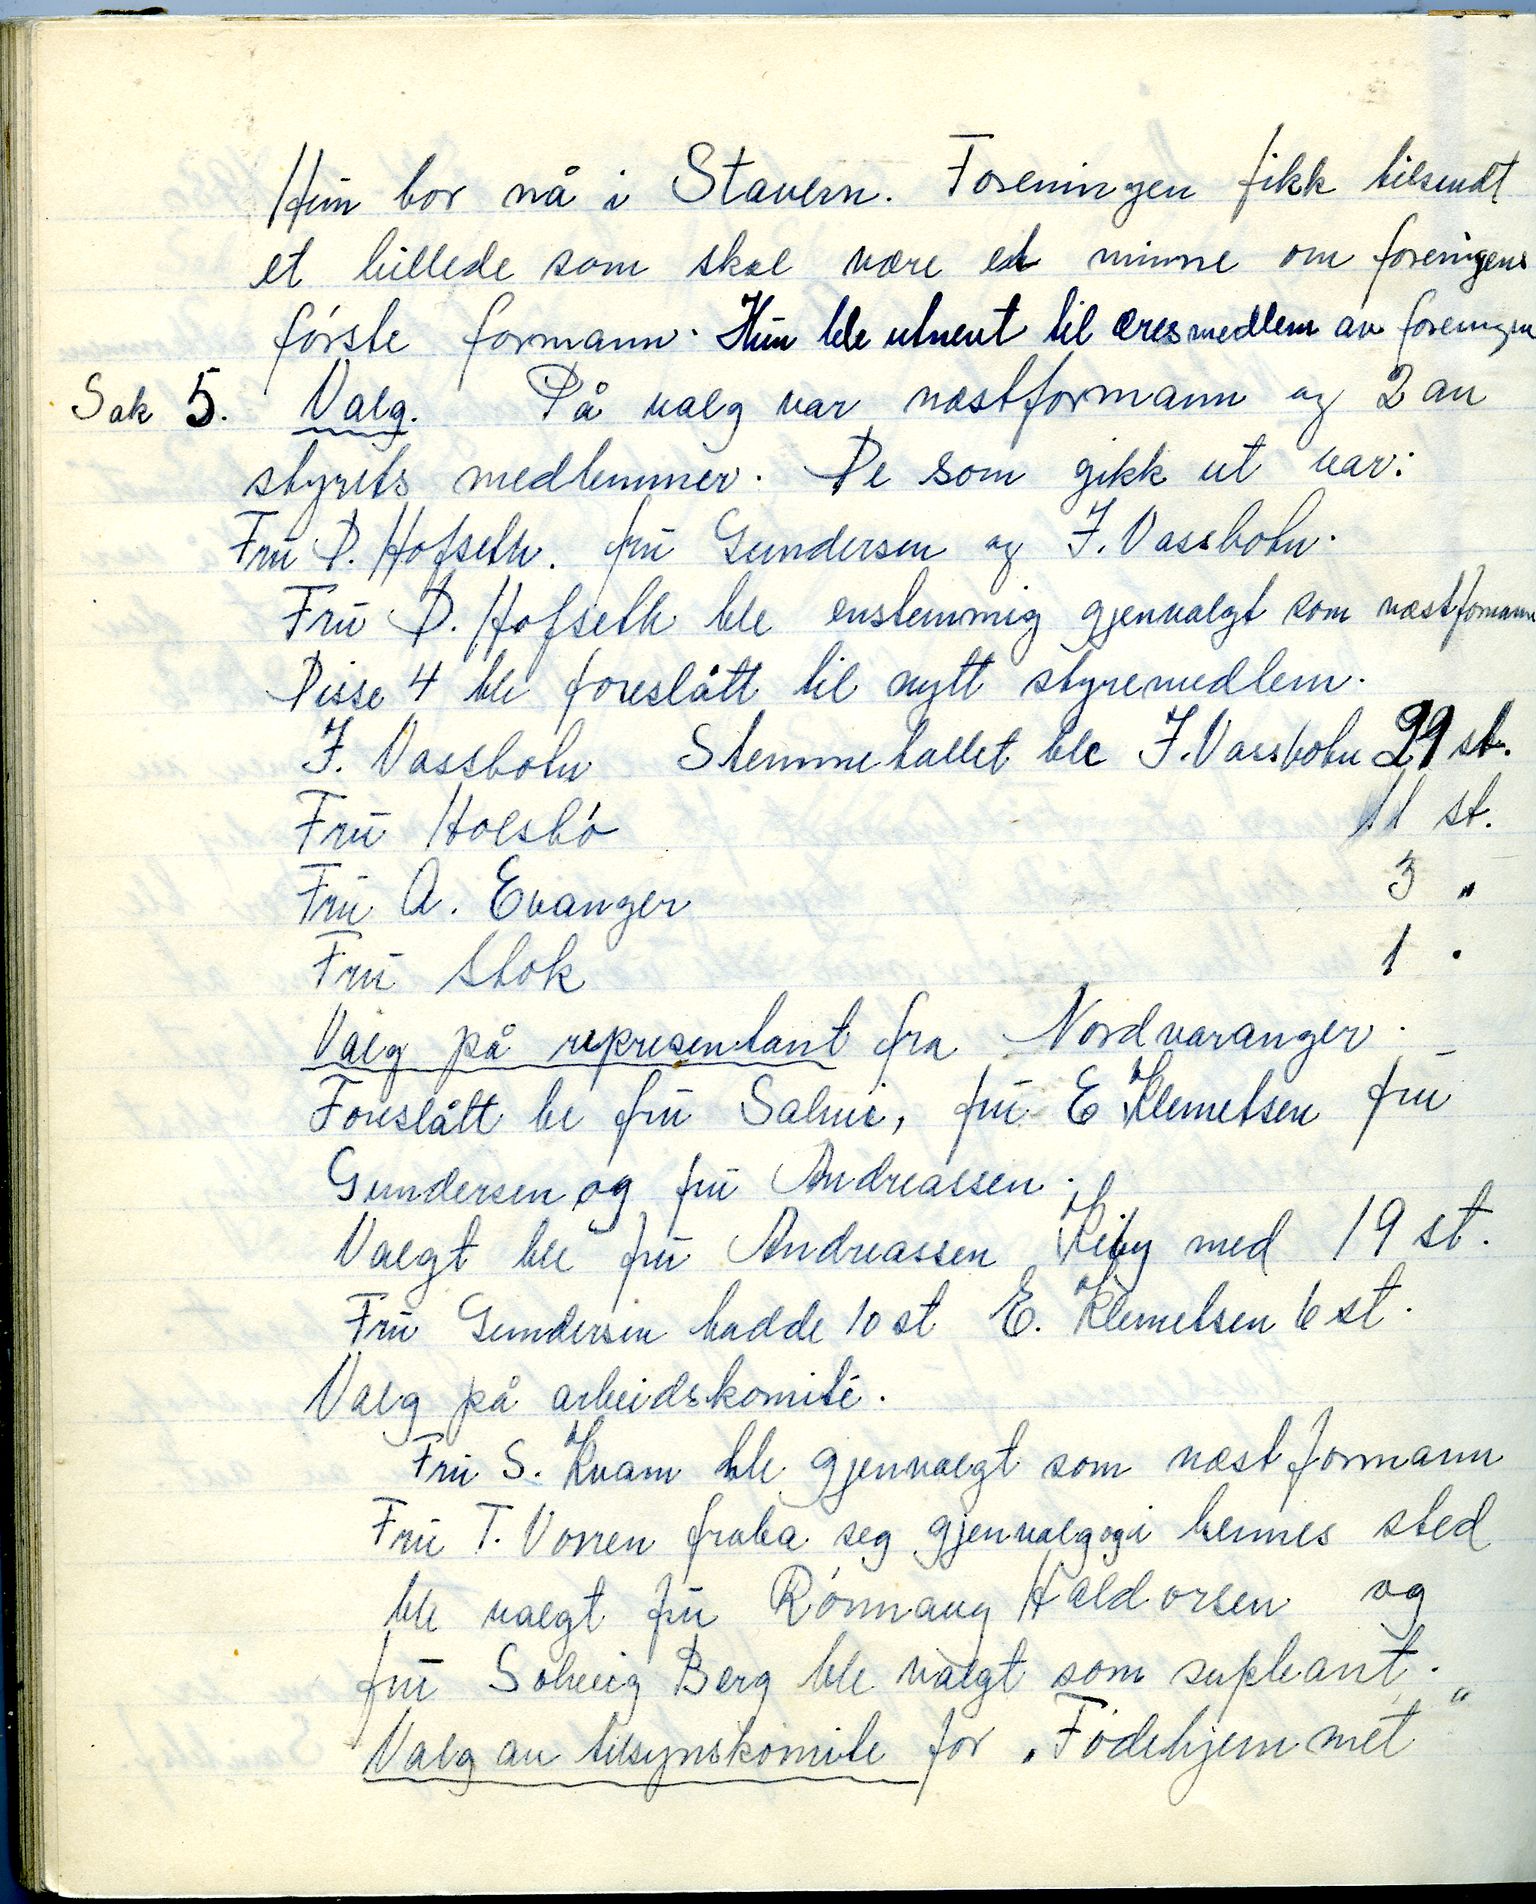 Hun bor nå i Stavern. Foreningen fikk tilsendt
et billede som skal være et minne om foreningens
første formann. Hun ble utnevt til æresmedlem av foreningen
Sak 5. Valg. På valg var næstformann og 2 av
styrets medlemmer. De som gikk ut var:
Fru D. Hofseth. fru Gundersen og J. Vassbotn.
Fru D. Hofseth ble enstemmig gjenvalgt som næstformann
Disse 4 ble foreslått til nytt styremedlem.
J. Vassbotn Stemmetallet ble J. Vassbotn 29 st.
Fru Holsbö 11 st.
Fru A. Evanger 3 "
Fru Stok 1 "
Valg på representant fra Nordvaranger.
Foreslått ble fru Salmi, fru E Klemetsen fru
Gundersen og fru Andreassen.
Valgt ble fru Andreassen Kiby med 19 st.
Fru Gundersen hadde 10 st E. Klemetsen 6 st.
Valg på arbeidskomité.
Fru S. Kvam ble gjenvalgt som næstformann
Fru T. Vorren fraba seg gjenvalg og i hennes sted
ble valgt fru Rönnaug Haldorsen og
fru Solveig Berg ble valgt som supleant.
Valg av tilsynskomite for "Födehjemmet"